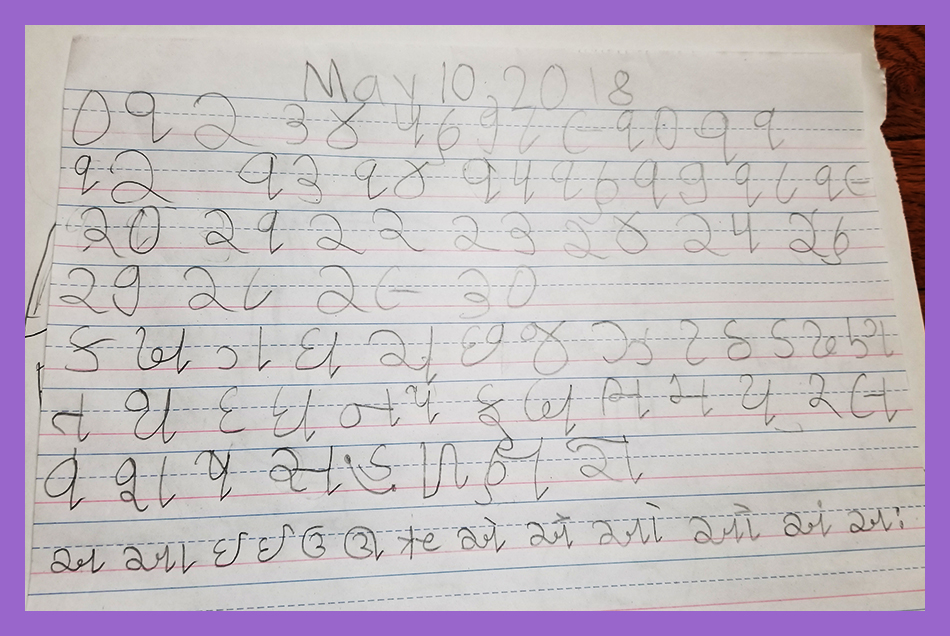 May 10, 2018
૦ ૧ ૨ ૩ ૪ ૫ ૬ ૭ ૮ ૯ ૧૦ ૧૧
૧૨ ૧૩ ૧૪ ૧૫ ૧૬ ૧૭ ૧૮ ૧૯
૨૦ ૨૧ ૨૨ ૨૩ ૨૪ ૨૫ ૨૬
૨૭ ૨૮ ૨૯ ૩૦
ક ખ ગ ઘ ચ છ જ ઝ ટ ઠ ડ ઢ ણ
ત થ દ ધ ન પ ફ બ ભ મ ય ર લ
વ શ ષ સ હ ળ ક્ષ જ્ઞ
અ આ ઇ ઈ ઉ ઊ ઋ એ ઐ ઓ ઔ અં અઃ